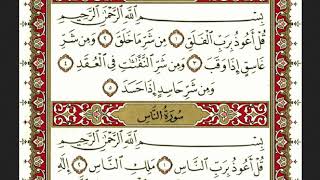 بِسْمِ اللَّهِ الرَّحْمَٰنِ الرَّحِيمِ
قُلْ أَعُوذُ بِرَبِّ الْفَلَقِ ١ مِن شَرِّ مَا خَلَقَ ٢ وَمِن شَرِّ
غَاسِقٍ إِذَا وَقَبَ ٣ وَمِن شَرِّ النَّفَّاثَاتِ فِي الْعُقَدِ ٤
وَمِن شَرِّ حَاسِدٍ إِذَا حَسَدَ ٥
سُورَةُ النَّاسِ
بِسْمِ اللَّهِ الرَّحْمَٰنِ الرَّحِيمِ
قُلْ أَعُوذُ بِرَبِّ النَّاسِ ١ مَلِكِ النَّاسِ ٢ إِلَٰهِ